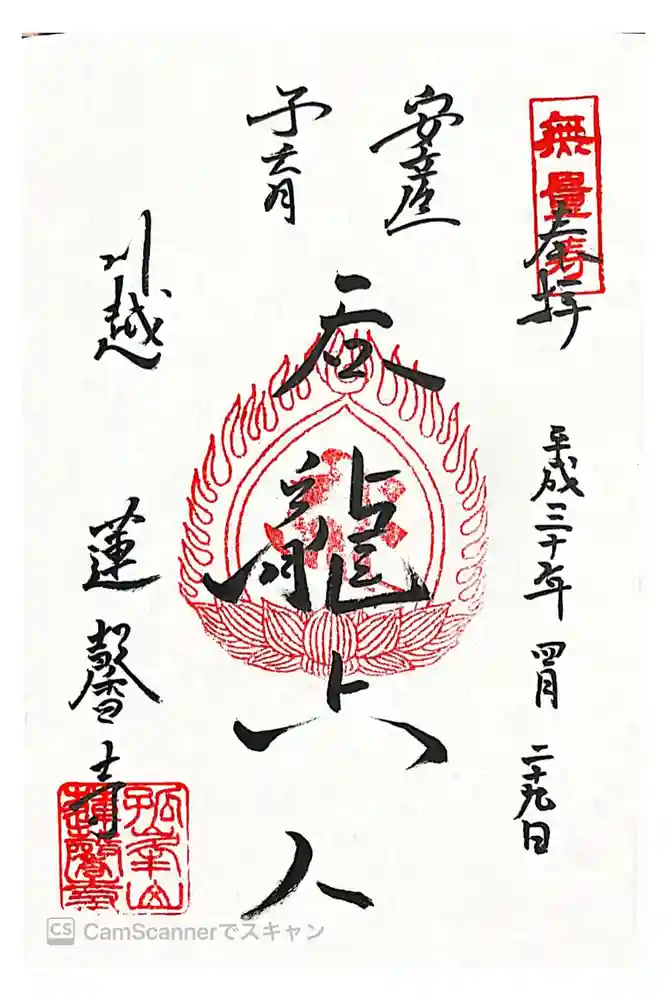 無量壽
奉拝
平成三十年 四月 二十九日
安産
子育
呑龍上人
川越 蓮馨寺
孤峯山
蓮馨寺
CS CamScannerでスキャン